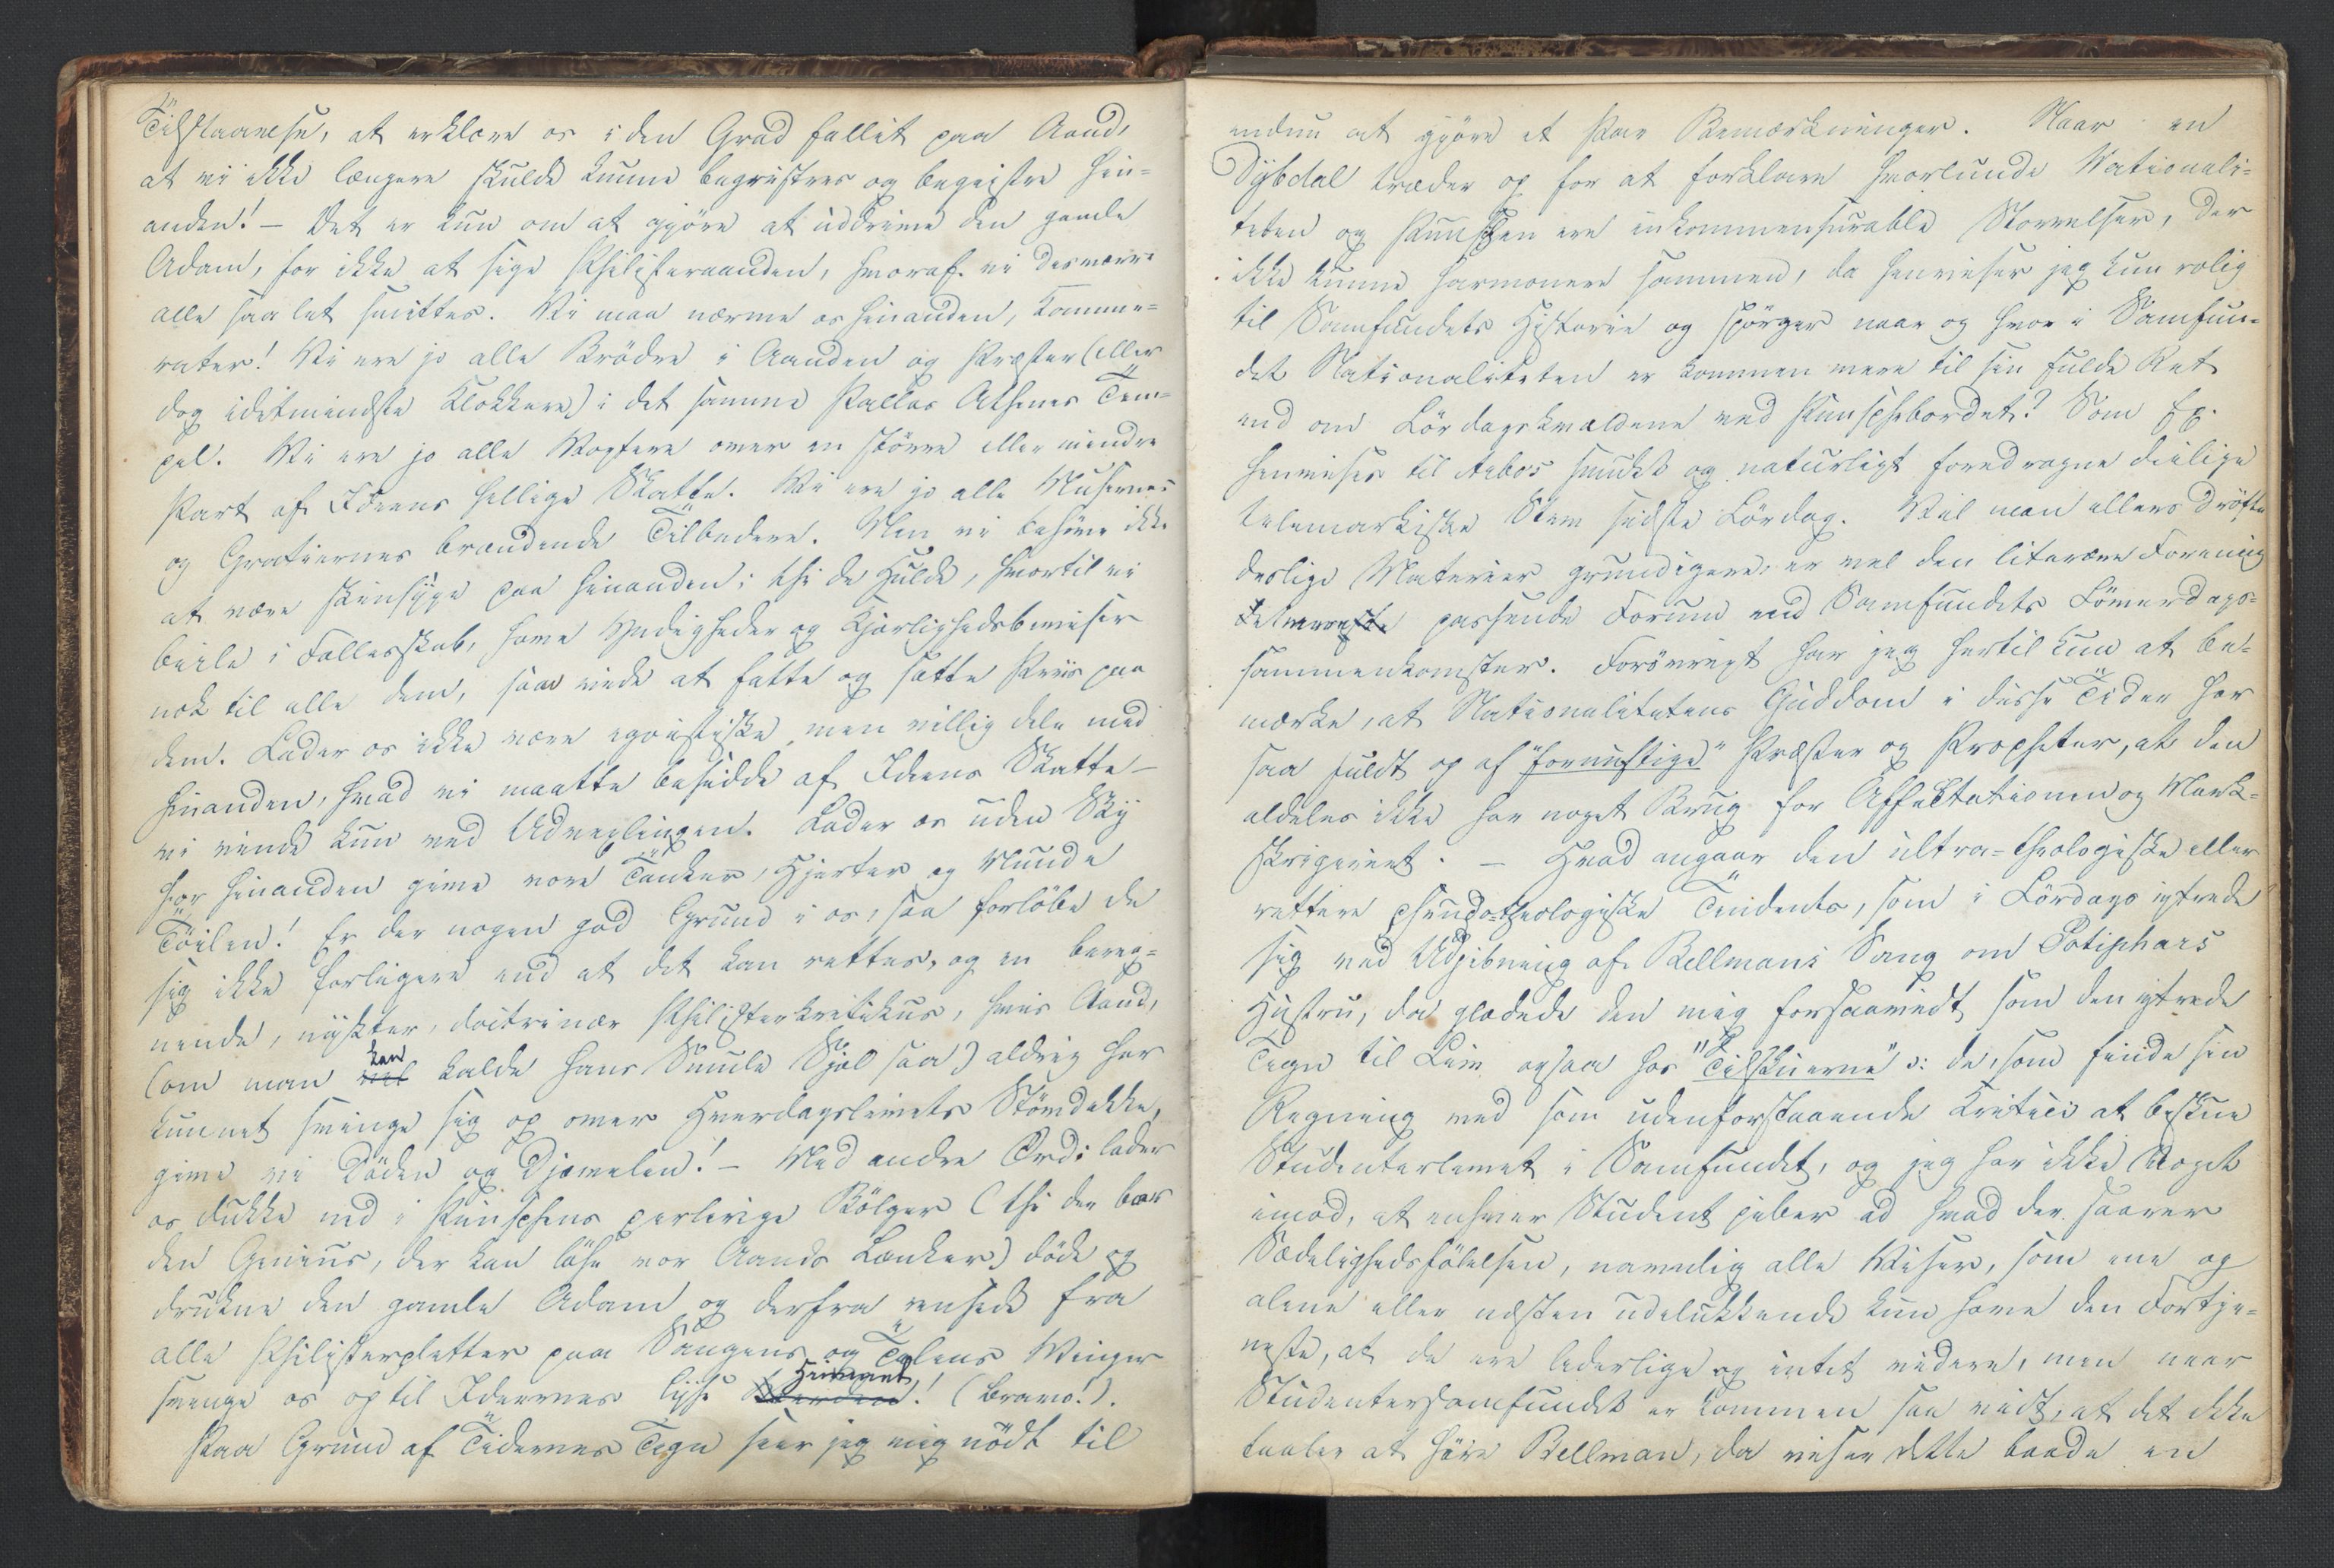 Tilstaaelse, at erklære os i den Grad fallit paa Aand,
at vi ikke længere skulde kunne begeistres og begeistre hin-
anden! — Det er kun om at gjöre at uddrive den gamle
Adam, for ikke at sige Philisteraanden, hvoraf vi desværre
alle saa let smittes. Vi maa nærme os hinanden, Kamme-
rater! Vi ere jo alle Brödre i Aanden og Præster (eller
dog idetmindste Klokkere) i det samme Pallas Athenes Tem-
pel. Vi ere jo alle Vogtere over en större eller mindre
Part af Ideens hellige Skatte. Vi ere jo alle Musernes
og Gratiernes brændende Tilbedere. Men vi behöve ikke
at være skinsyge paa hinanden; thi de Hulde, hvortil vi
beile i Fællesskab, have Yndigheder og Kjærlighedsbeviser
nok til alle dem, som vide at fatte og sætte Priis paa
dem. Lader os ikke være egoistiske, men villig dele med
hinanden, hvad vi maatte besidde af Ideens Skatte —
vi vinde kun ved Udvexlingen. Lader os uden Sky
for hinanden give vore Tanker, Hjerter og Munde
Töilen! Er der nogen god Grund i os, saa forlöbe de
sig ikke farligere end at det kan rettes, og en bereg-
nende, nögtern, doctrinær Philisterkritikus, hvis Aand,
(om man vel kan kalde hans Smule Sjæl saa) aldrig har
kunnet svinge sig op over Hverdagslivets Stövdække,
give vi Döden og Djævelen! — Med andre Ord: lader
os dukke ned i Punschens perlerige Bölger (thi der boer
den Genius, der kan löse vor Aands Lænker) döde og
drukne den gamle Adam og derfra rensede fra
alle Philisterpletter paa Sangens og Talens Vinger
svinge os op til Ideernes lyse Verden Himmel! (Bravo!).
Paa Grund af Tidernes Tegn seer jeg mig nödt til
endnu at gjöre et Par Bemærkninger. Naar en
Dybdal træder op for at forklare hvorlunde Nationali-
teten og Punschen ere inkommensurable Störrelser, der
ikke kunne harmonere sammen, da henviser jeg kun rolig
til Samfundets Historie og spörger naar og hvor i Samfun-
det Nationaliteten er kommen mere til sin fulde Ret
end om Lördagskvældene ved Punschebordet? Som Ex.
henvises til Aabos smukt og naturligt foredragne deilige
telemarkiske Stev sidste Lördag. Vil man ellers dröfte
deslige Materier grundigere, er vel den literære Forening
et mere passende Forum end Samfundets Löverdags-
sammenkomster. Forövrigt har jeg hertil kun at be-
mærke, at Nationalitetens Guddom i disse Tider har
saa fuldt op af "fornuftige" Præster og Propheter, at den
aldeles ikke har noget Brug for Affectationen og Mark-
skrigeriet. — Hvad angaar den ultra-theologiske eller
rettere pseudo-theologiske Tendents, som i Lördags yttrede
sig ved Udpibning af Bellmans Sang om Potiphars
Hustru, da glædede den mig forsaavidt som den yttrede
Tegn til Liv ogsaa hos "Tilskuerne" ɔ: de, som finde sin
Regning ved som udenforstaaende Kritici at beskue
Studenterlivet i Samfundet, og jeg har ikke Noget
imod, at enhver Student piber ad hvad der saarer
Sædelighedsfölelsen, navnlig alle Viser, som ene og
alene eller næsten udelukkende kun have den Fortje-
neste, at de ere liderlige og intet videre, men naar
Studentersamfundet er kommen saa vidt, at det ikke
taaler at höre Bellman, da viser dette baade en